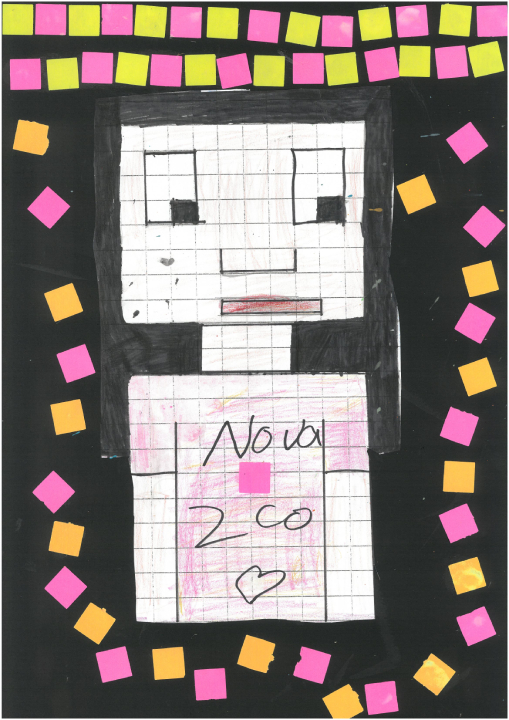 Nova
2co
♡